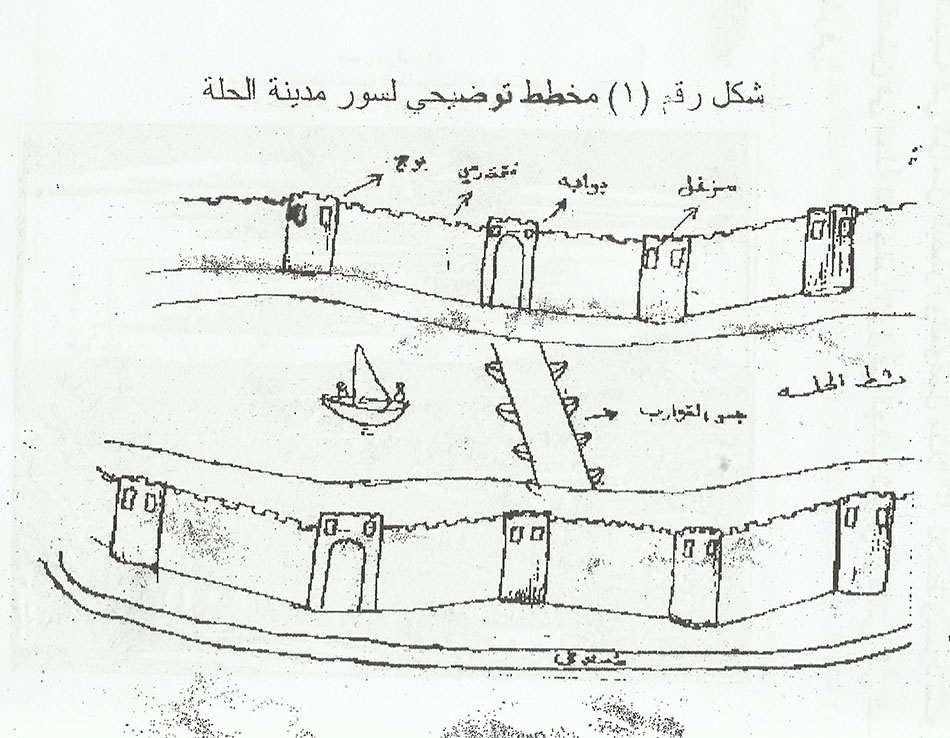 شكل رقم (١) مخطط توضيحي لسور مدينة الحلة
برج
بوابه
مزغل
شط الحله
جسر القوارب